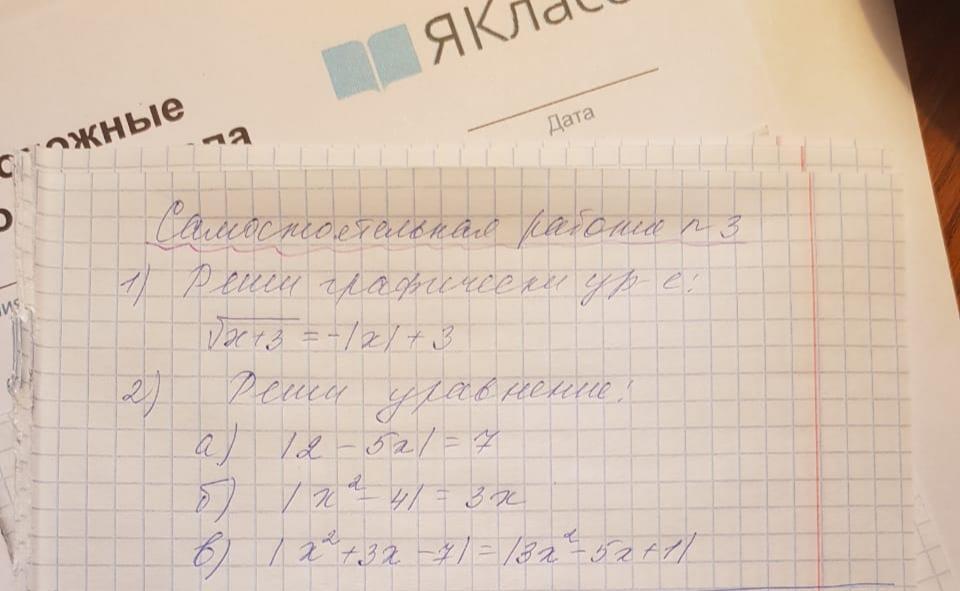 ЯКласс
Дата
ожные
Самостоятельная работа n 3
1) Реши графически ур-е:
√x+3 = -|x| + 3
2) Реши уравнение:
а) |2 - 5x| = 7
б) |x² - 4| = 3x
в) |x² + 3x - 7| = |3x² - 5x + 1|